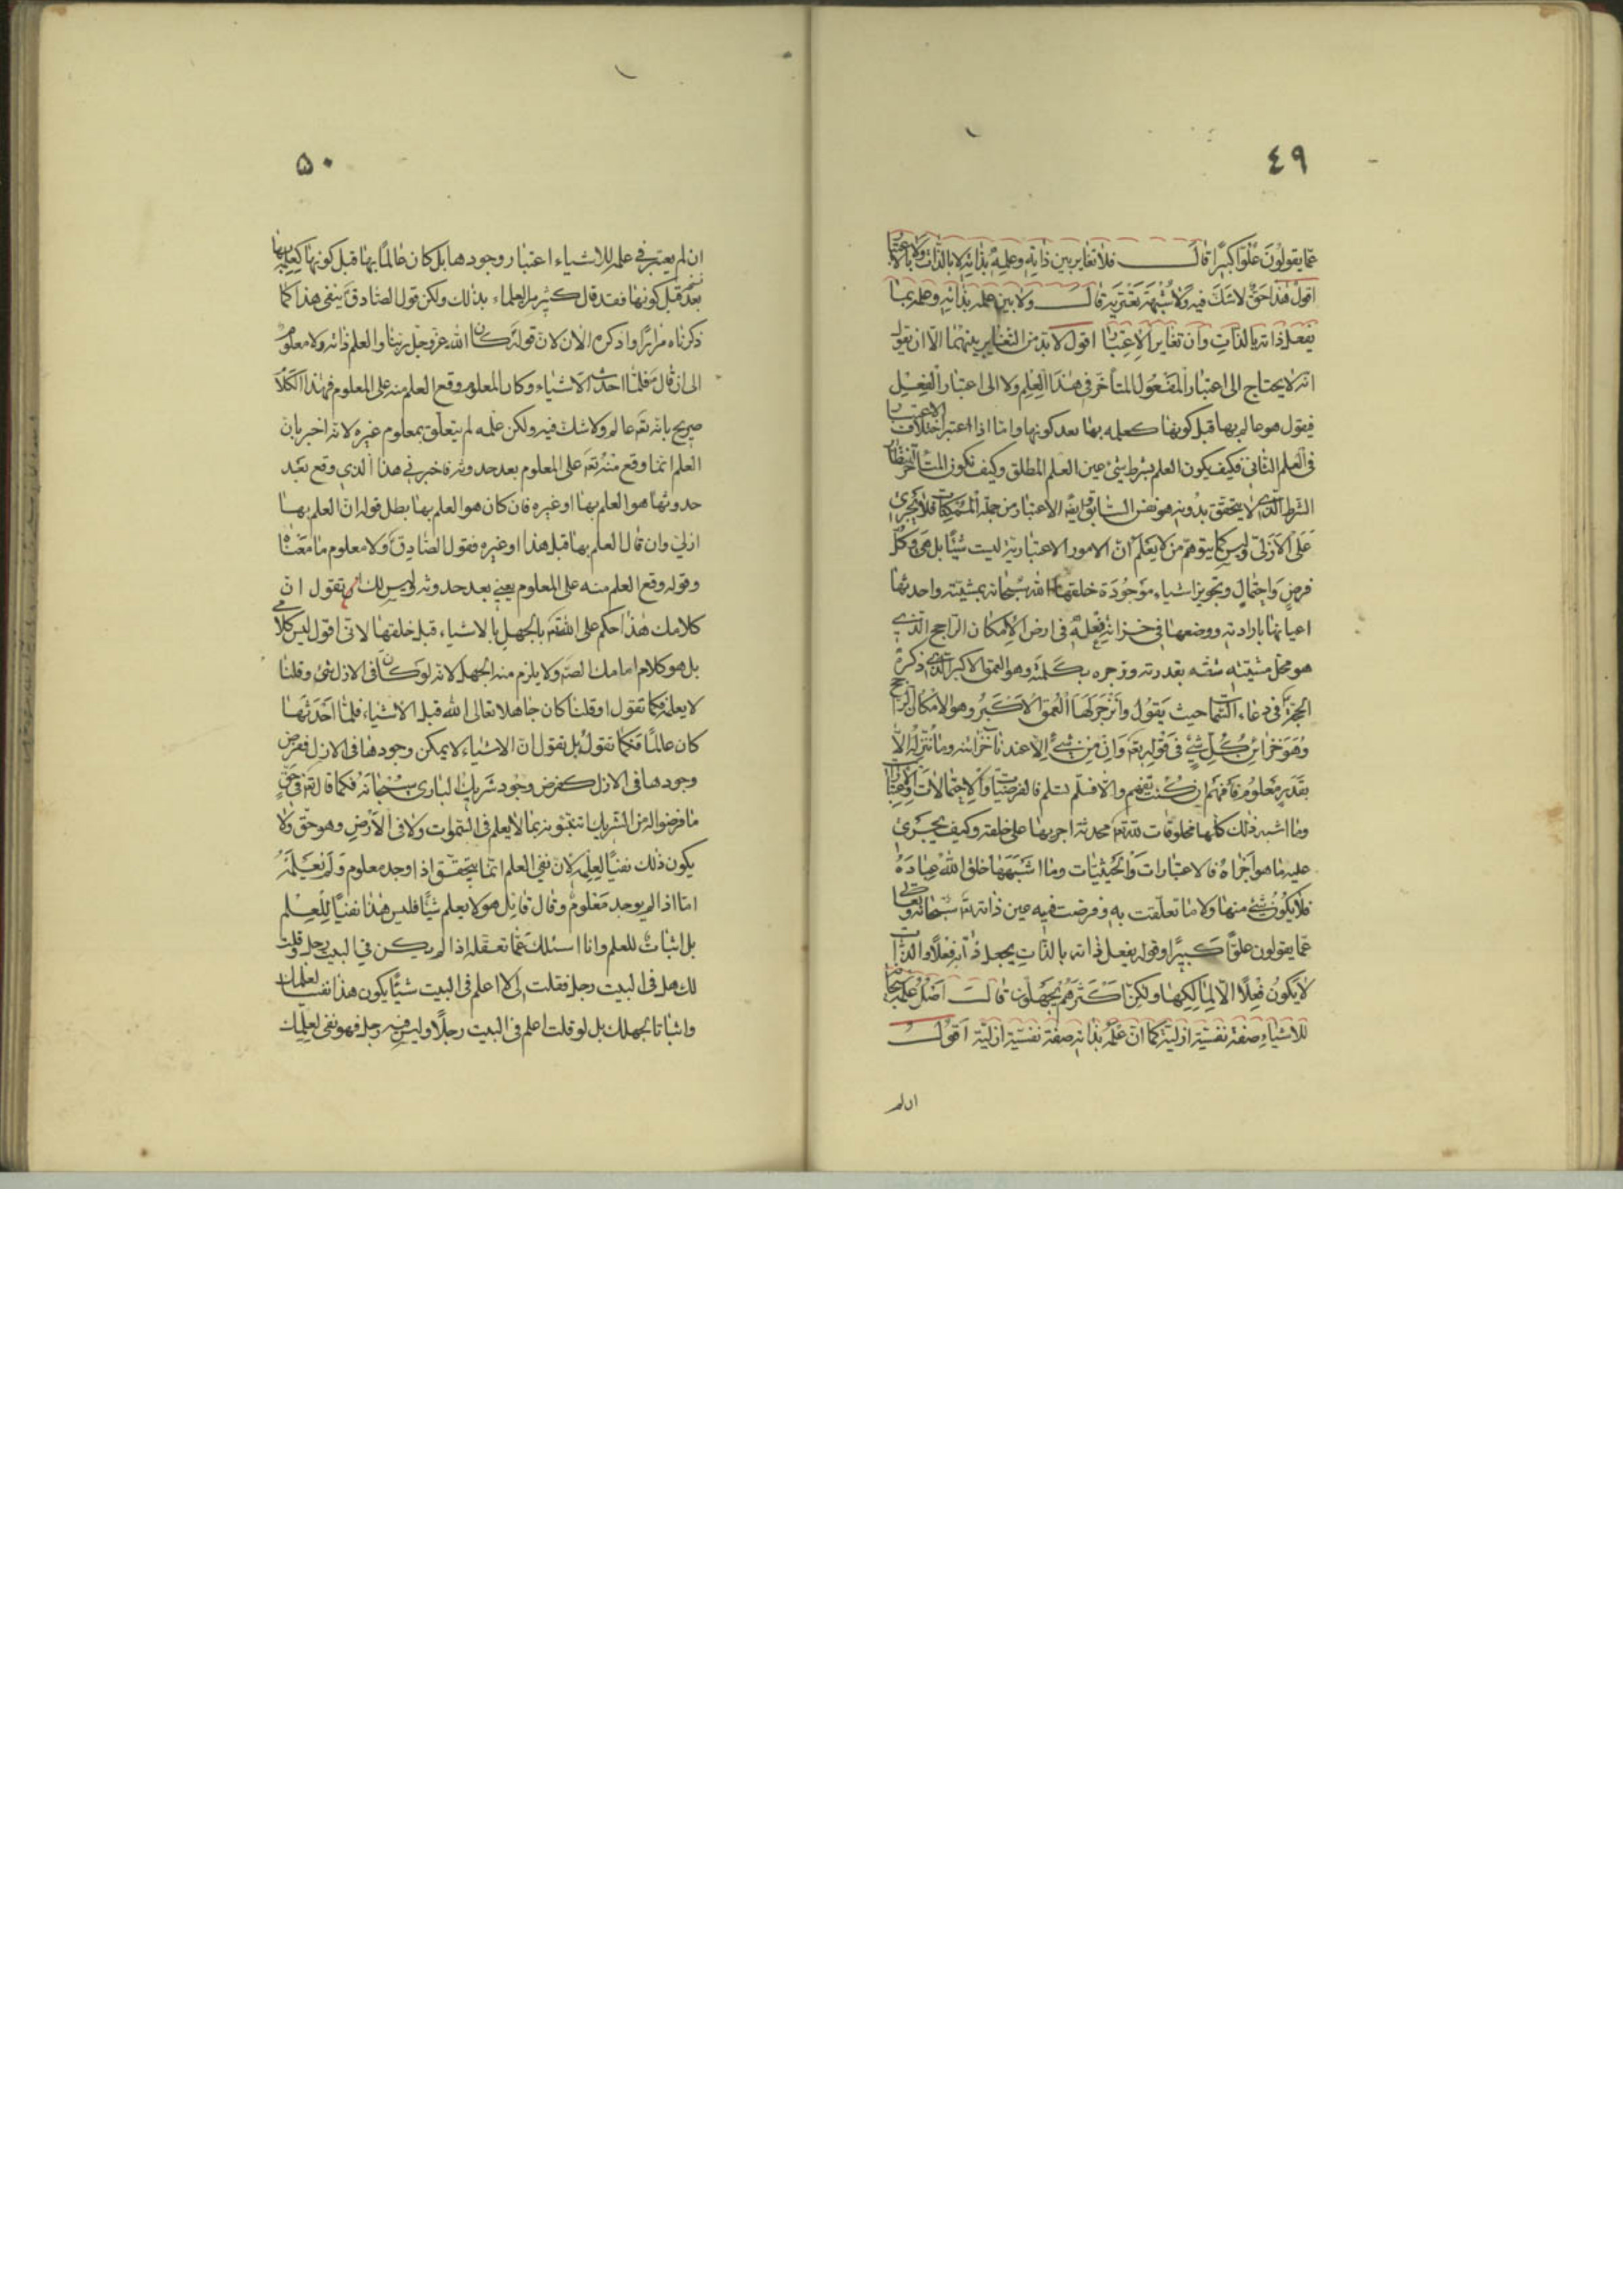 ٤٩
عمّا يقولون علوّا كبيرًا قال فلا تغاير بين ذاته وعلمه بذاته لا بالذّات ولا بالاعتبار
اقول هذا حقّ لا شكّ فيه ولا شبهة تعتريه قال ولا بين علمه بذاته وعلمه بما
يفعل ذاته بالذّات وان تغاير الاعتبار اقول لا بدّ من التّغاير بينهما الّا ان يقول
انّه لا يحتاج الى اعتبار المفعول المتأخّر فى هذا العلم ولا الى اعتبار الفعل
فيقول هو عالم بها قبل كونها كعلمه بها بعد كونها وامّا اذا اعتبر اختلاف الاعتبار
فى العلم الثّانى فكيف يكون العلم بشرط شئ عين العلم المطلق وكيف تكون المتأخّر
الشرط الّذى لا يتحقّق بدونه هو نفس السّابق الاعتبار من جملة الممكنات فلا تجرى
على الازلىّ وليس كما يتوهّم من لا يعلم انّ الامور الاعتباريّة ليست شيئًا بل هى وكلّ
فرض واحتمال وتجويز اشياء موجودة خلقها اللّه سبحانه بمشيّته واحدثها
اعيانها بارادته ووضعها فى خزائن فعله فى ارض الامكان الرّاجح الّذى
هو محلّ مشيّته شقّه بقدرته وزجره بكلمته وهو العمق الاكبر الّذى ذكره
الحجّة فى دعاء السّمات حيث يقول وانزجر لها العمق الاكبر وهو الامكان الرّاجح
وهو خزائن كلّ شئ فى قوله تعه وان من شئ الّا عندنا خزائنه وما ننزّله الّا
بقدر معلوم فافهم ان كنت تفهم والّا فسلّم تسلم فالفرضيّات والاحتمالات والاعتبارات
وما اشبه ذلك كلّها مخلوقات للّه محدثة اجريها على خلقه وكيف يجرى
عليه ما هو اجراه فالاعتبارات والحيثيّات وما اشبهها خلق اللّه عباده
فلا يكون شئ منها ولا ما تعلّقت به وفرضت فيه عين ذاته سبحانه وتعالى
عمّا يقولون علوّا كبيرًا وقوله يفعل ذاته بالذّات يجعل ذاته فعلًا والذّات
لا يكون فعلًا الّا لمالكها ولكنّ اكثرهم يجهلون قال اصل علمه سبحانه
للاشياء صفة نفسيّة ازليّة كما انّ علمه بذاته صفة نفسيّة ازليّة اقول
ان لم
٥٠
ان لم يعتبر فى علمه للاشياء اعتبار وجودها بل كان عالمًا بها قبل كونها كعلمه بها
بعد كونها فقد قال كثير من العلماء بذلك ولكن قول الصّادق ينفى هذا كما
ذكرناه مرارًا واذكره الان لانّ قوله كان اللّه عزّ وجلّ ربّنا والعلم ذاته ولا معلوم
الى ان قال فلمّا احدث الاشياء وكان المعلوم وقع العلم منه على المعلوم فهذا الكلام
صريح بانّه تعه عالم ولا شكّ فيه ولكن علمه لم يتعلّق بمعلوم غيره لانّه اخبر بانّ
العلم انّما وقع منه تعه على المعلوم بعد حدوثه فاخبر فى هذا الّذى وقع بعد
حدوثها هو العلم بها او غيره فان كان هو العلم بها بطل قوله انّ العلم بها
ازلىّ وان قال العلم بها قبل هذا او غيره فقول الصّادق ولا معلوم ما معناه
وقوله وقع العلم منه على المعلوم يعنى بعد حدوثه وليس لك ان تقول انّ
كلامك هذا حكم على اللّه بالجهل بالاشياء قبل خلقها لانّى اقول ليس كلامى
بل هو كلام امامك الصّه ولا يلزم منه الجهل لانّه لو كان فى الازل شئ وقلنا
لا يعلمه فكما تقول او قلنا كان جاهلا تعالى اللّه قبل الاشياء فلمّا احدثها
كان عالمًا فكما تقول بل نقول انّ الاشياء لا يمكن وجودها فى الازل ففرض
وجودها فى الازل كفرض وجود شريك البارى سبحانه فكما قال تعه فى حقّ
ما فرضوا له من الشريك اتنبّئونه بما لا يعلم فى السّموات ولا فى الارض وهو حقّ ولا
يكون ذلك نفيًا لعلمه لانّ نفى العلم انّما يتحقّق اذا وجد معلوم ولم يعلمه
امّا اذا لم يوجد معلوم وقال قائل هو لا يعلم شيئًا فليس هذا نفيًا للعلم
بل اثباتٌ للعلم وانا اسئلك عمّا تعقله اذا لم يكن فى البيت رجل وقلت
لك هل فى البيت رجل فقلت لى لا اعلم فى البيت شيئًا يكون هذا نفيًا لعلمك
واثباتا لجهلك بل لو قلت اعلم فى البيت رجلًا وليس فيه رجل فهو نفى لعلمك